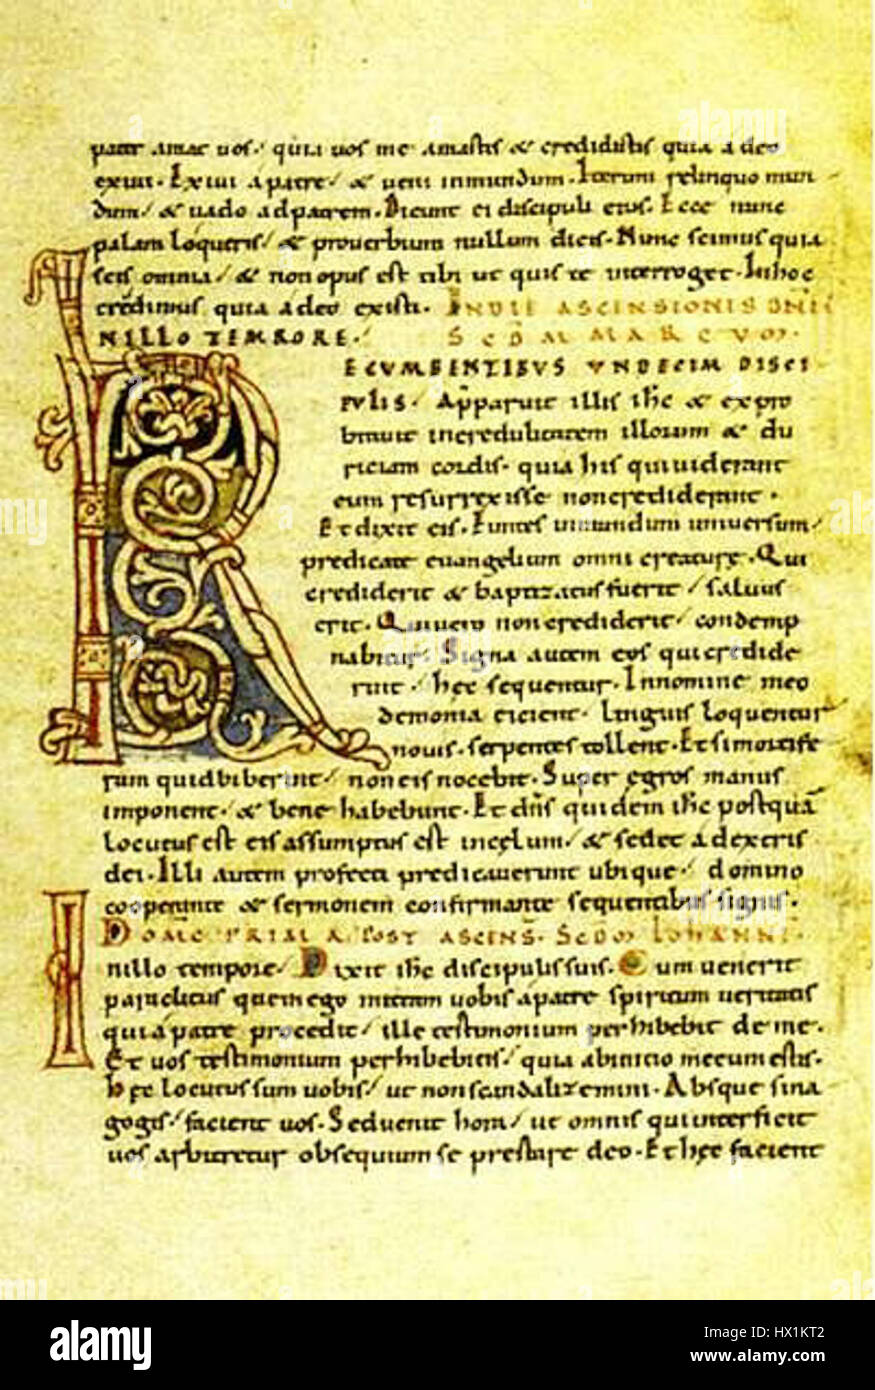 pater amat vos / quia vos me amastis & credidistis quia a deo
exivi · Exivi a patre / & veni inmundum · Iterum relinquo mun
dum / & vado ad patrem · Dicunt ei discipuli eius · Ecce nunc
palam loqueris / & proverbium nullum dicis · Nunc scimus quia
scis omnia / & non opus est tibi ut quis te interroget · Inhoc
credimus quia a deo existi · IN DIE ASCENSIONIS DNI
N ILLO TEMPORE · SCDM MARCUM ·
RECUMBENTIBUS UNDECIM DISCI
PULIS · Apparuit illis ihc & expro
bravit incredulitatem illorum & du
riciam cordis · quia his qui viderant
eum resurrexisse non crediderant ·
Et dixit eis · Euntes in mundum universum /
predicate evangelium omni creature · Qui
crediderit & baptizatus fuerit / salvus
erit · Qui vero non crediderit / condemp
nabitur · Signa autem eos qui credide
rint · hec sequentur · In nomine meo
demonia eicient · linguis loquentur
novis · serpentes tollent · Et si mortife
rum quid biberint / non eis nocebit · Super egros manus
imponent · & bene habebunt · Et dns quidem ihc postquā
locutus est eis assumptus est in celum / & sedet a dextris
dei · Illi autem profecti predicaverunt ubique / domino
cooperante & sermonem confirmante sequentibus signis ·
DOMC PRIMA POST ASCENS · SCDM IOHANN ·
I nillo tempore / Dixit ihc discipulis suis · Cum venerit
paraclitus quem ego mittam vobis a patre spiritum veritatis
qui a patre procedit / ille testimonium perhibebit de me ·
Et vos testimonium perhibebitis / quia ab inicio mecum estis ·
Hec locutus sum vobis / ut non scandalizemini · Absque sina
gogis / facient vos · Sed venit hora / ut omnis qui interficit
vos arbitretur obsequium se prestare deo · Et hec facient
alamy
Image ID: HX1KT2
www.alamy.com